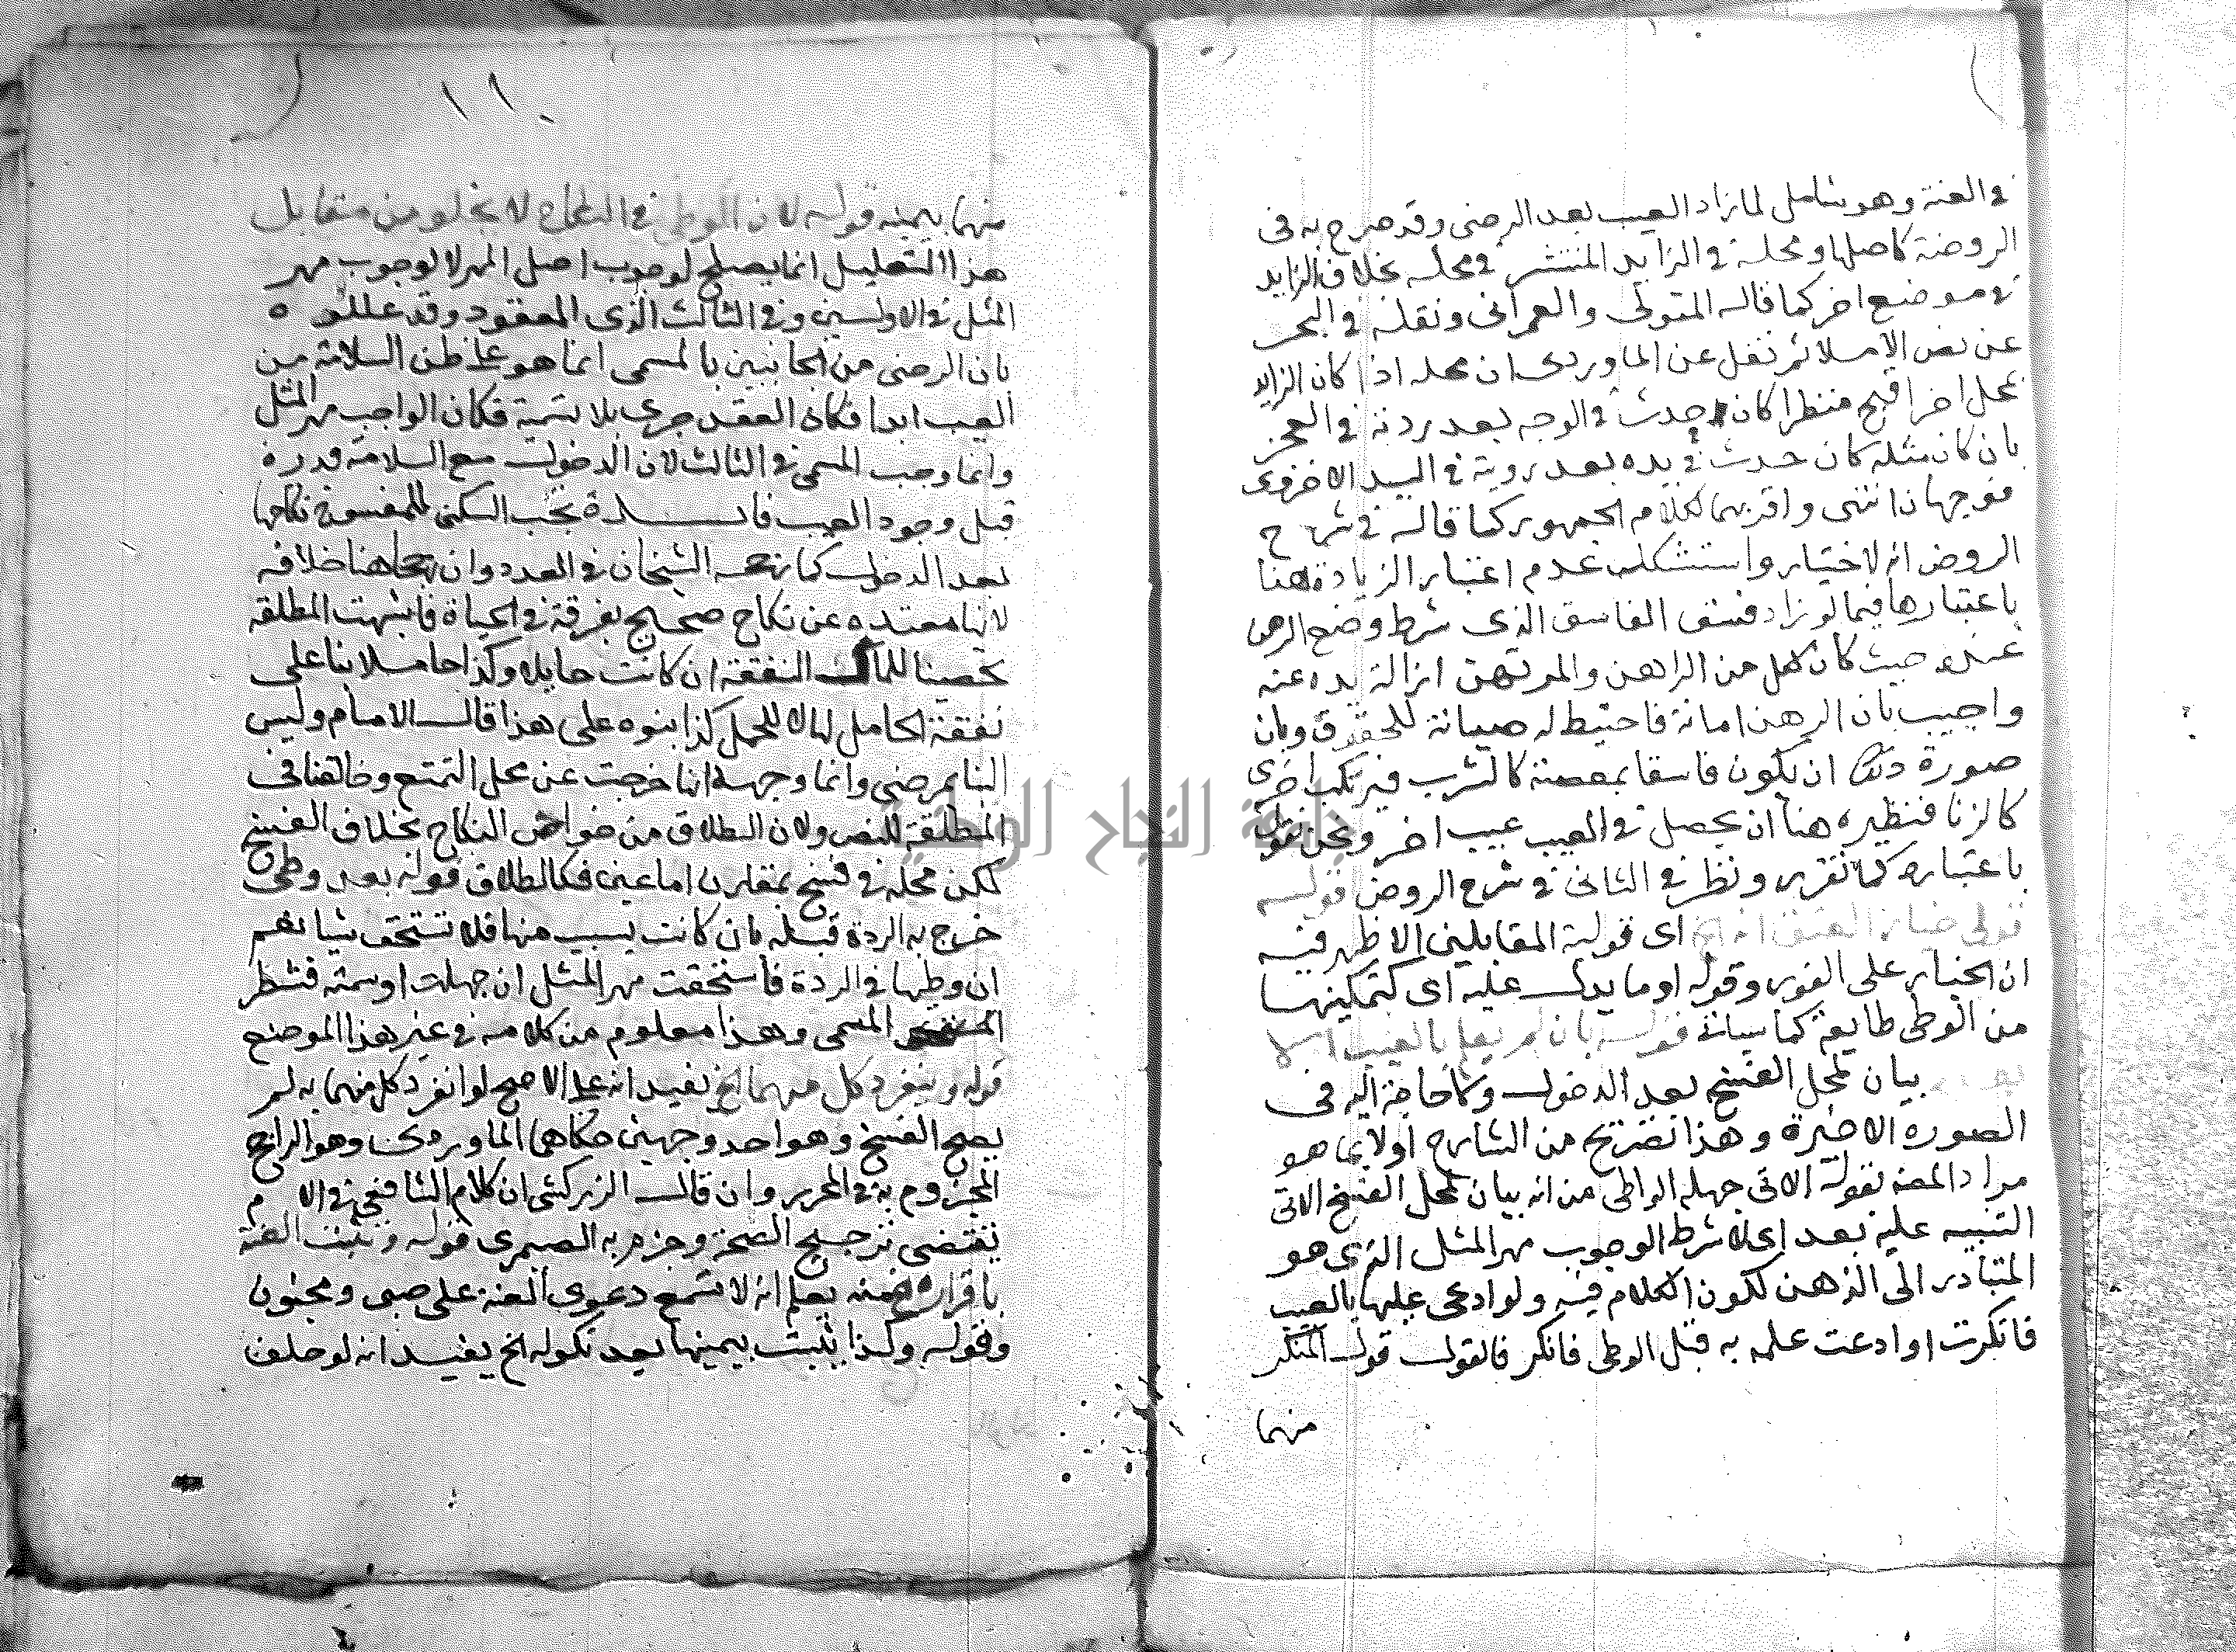 في العنة وهو شامل لما زاد العيب بعد الرضى وقد صرح به في
الروضة كاصلها ومحله في الزايد المنتشر في محله بخلاف الزايد
في موضع اخر كما قاله المتولى والعمراني ونقله في البحر
عن نص الاملا ثم نقل عن الماوردى ان محله اذا كان الزايد
بمحل اخر اقبح منظرا كان حدث في الوجه بعد رويته في العجز
بان كان مثله كان حدث في يده بعد روية في اليد الاخرى
فوجهان انتهى واقربهما لكلام الجمهور كما قاله في شرح
الروض انه لا خيار واستشكل عدم اعتبار الزيادة هنا
باعتبارها فيما لو زاد فسق الفاسق الذى شرط وضع الرهن
عنده حيث كان لكل من الراهن والمرتهن ازالة يده عنه
واجيب بان الرهن امانة فاحتيط له صيانة للحقوق وبان
صورة ذلك ان يكون فاسقا بمعصية كالشرب فيرتكب اخرى
كالزنا فنظيره هنا ان يحصل في العيب عيب اخر ونحن نقول
باعتباره كما تقرر ونظر في الثاني في شرح الروض قوله
قولى خيار العتق انه الخ اى قولية المقابلين الاظهر فيه
ان الخيار على الفور وقوله او ما يدل عليه اى كتمكينها
من الوطى طايعة كما سياتى قوله بان لم يعلم بالعيب الا
بعده بيان لمحل الفسخ بعد الدخول ولا حاجة اليه في
الصورة الاخيرة وهذا تصريح من الشارح اولا بما هو
مراد المصنف بقوله الاتى جهله الواطى من انه بيان لمحل الفسخ الاتى
التنبيه عليه بعد اى لا شرط لوجوب مهر المثل الذى هو
المتبادر الى الذهن لكون الكلام فيه ولو ادعى عليها بالعيب
فانكرت او ادعت علمه به قبل الوطى فانكر فالقول قول المنكر
منهما
١١
منهما بيمينه قوله لان الوطى في النكاح لا يخلو من مقابل
هذا التعليل انما يصلح لوجوب اصل المهر لا لوجوب مهر
المثل في الاولين وفي الثالث الذى المعقود وقد عللوه
بان الرضى من الجانبين بالمسمى انما هو على ظن السلامة من
العيب ابدا فكان العقد جرى بلا تسمية فكان الواجب مهر المثل
وانما وجب المسمى في الثالث لان الدخول مع السلامة قدره
قبل وجود العيب فايدة تجب السكنى للمفسوخ نكاحها
بعد الدخول كما رجحه الشيخان في العدد وان رجحا هنا خلافه
لانها معتده عن نكاح صحيح بفرقة في الحياة فاشبهت المطلقه
تحصينا للماء النفقة ان كانت حايلا وكذا حاملا بنا على
نفقة الحامل لها لا للحمل كذا بنوه على هذا قال الامام وليس
البنا مرضى وانما وجهه انها خرجت عن محل التمتع وخالفنا في
المطلقة للنص ولان الطلاق من خواص النكاح بخلاف الفسخ
لكن محله في فسخ بمقارن اما غيره فكالطلاق قوله بعد وطى
خرج به الردة قبله بان كانت بسبب منها فلا تستحق شيا نعم
ان وطيها في الردة فاستحقت مهر المثل ان جهلت او سمته فشطر
المسمى وهذا معلوم من كلامه في غير هذا الموضع
قوله وينفرد كل منهما الخ يفيد انه على الاصح لو انفرد كل منهما به لم
يصح الفسخ وهو احد وجهين حكاهما الماوردى وهو الراجح
المجزوم به في المحرر وان قال الزركشى ان كلام الشافعي في الام
يقتضى ترجيح الصحة وجزم به الصيمرى قوله وتثبت العنة
باقراره منه يعلم انه لا تسمع دعوى العنة على صبى ومجنون
وقوله وكذا يثبت بيمينها بعد نكوله الخ يفيد انه لو حلف
جامعة النجاح الوطنية